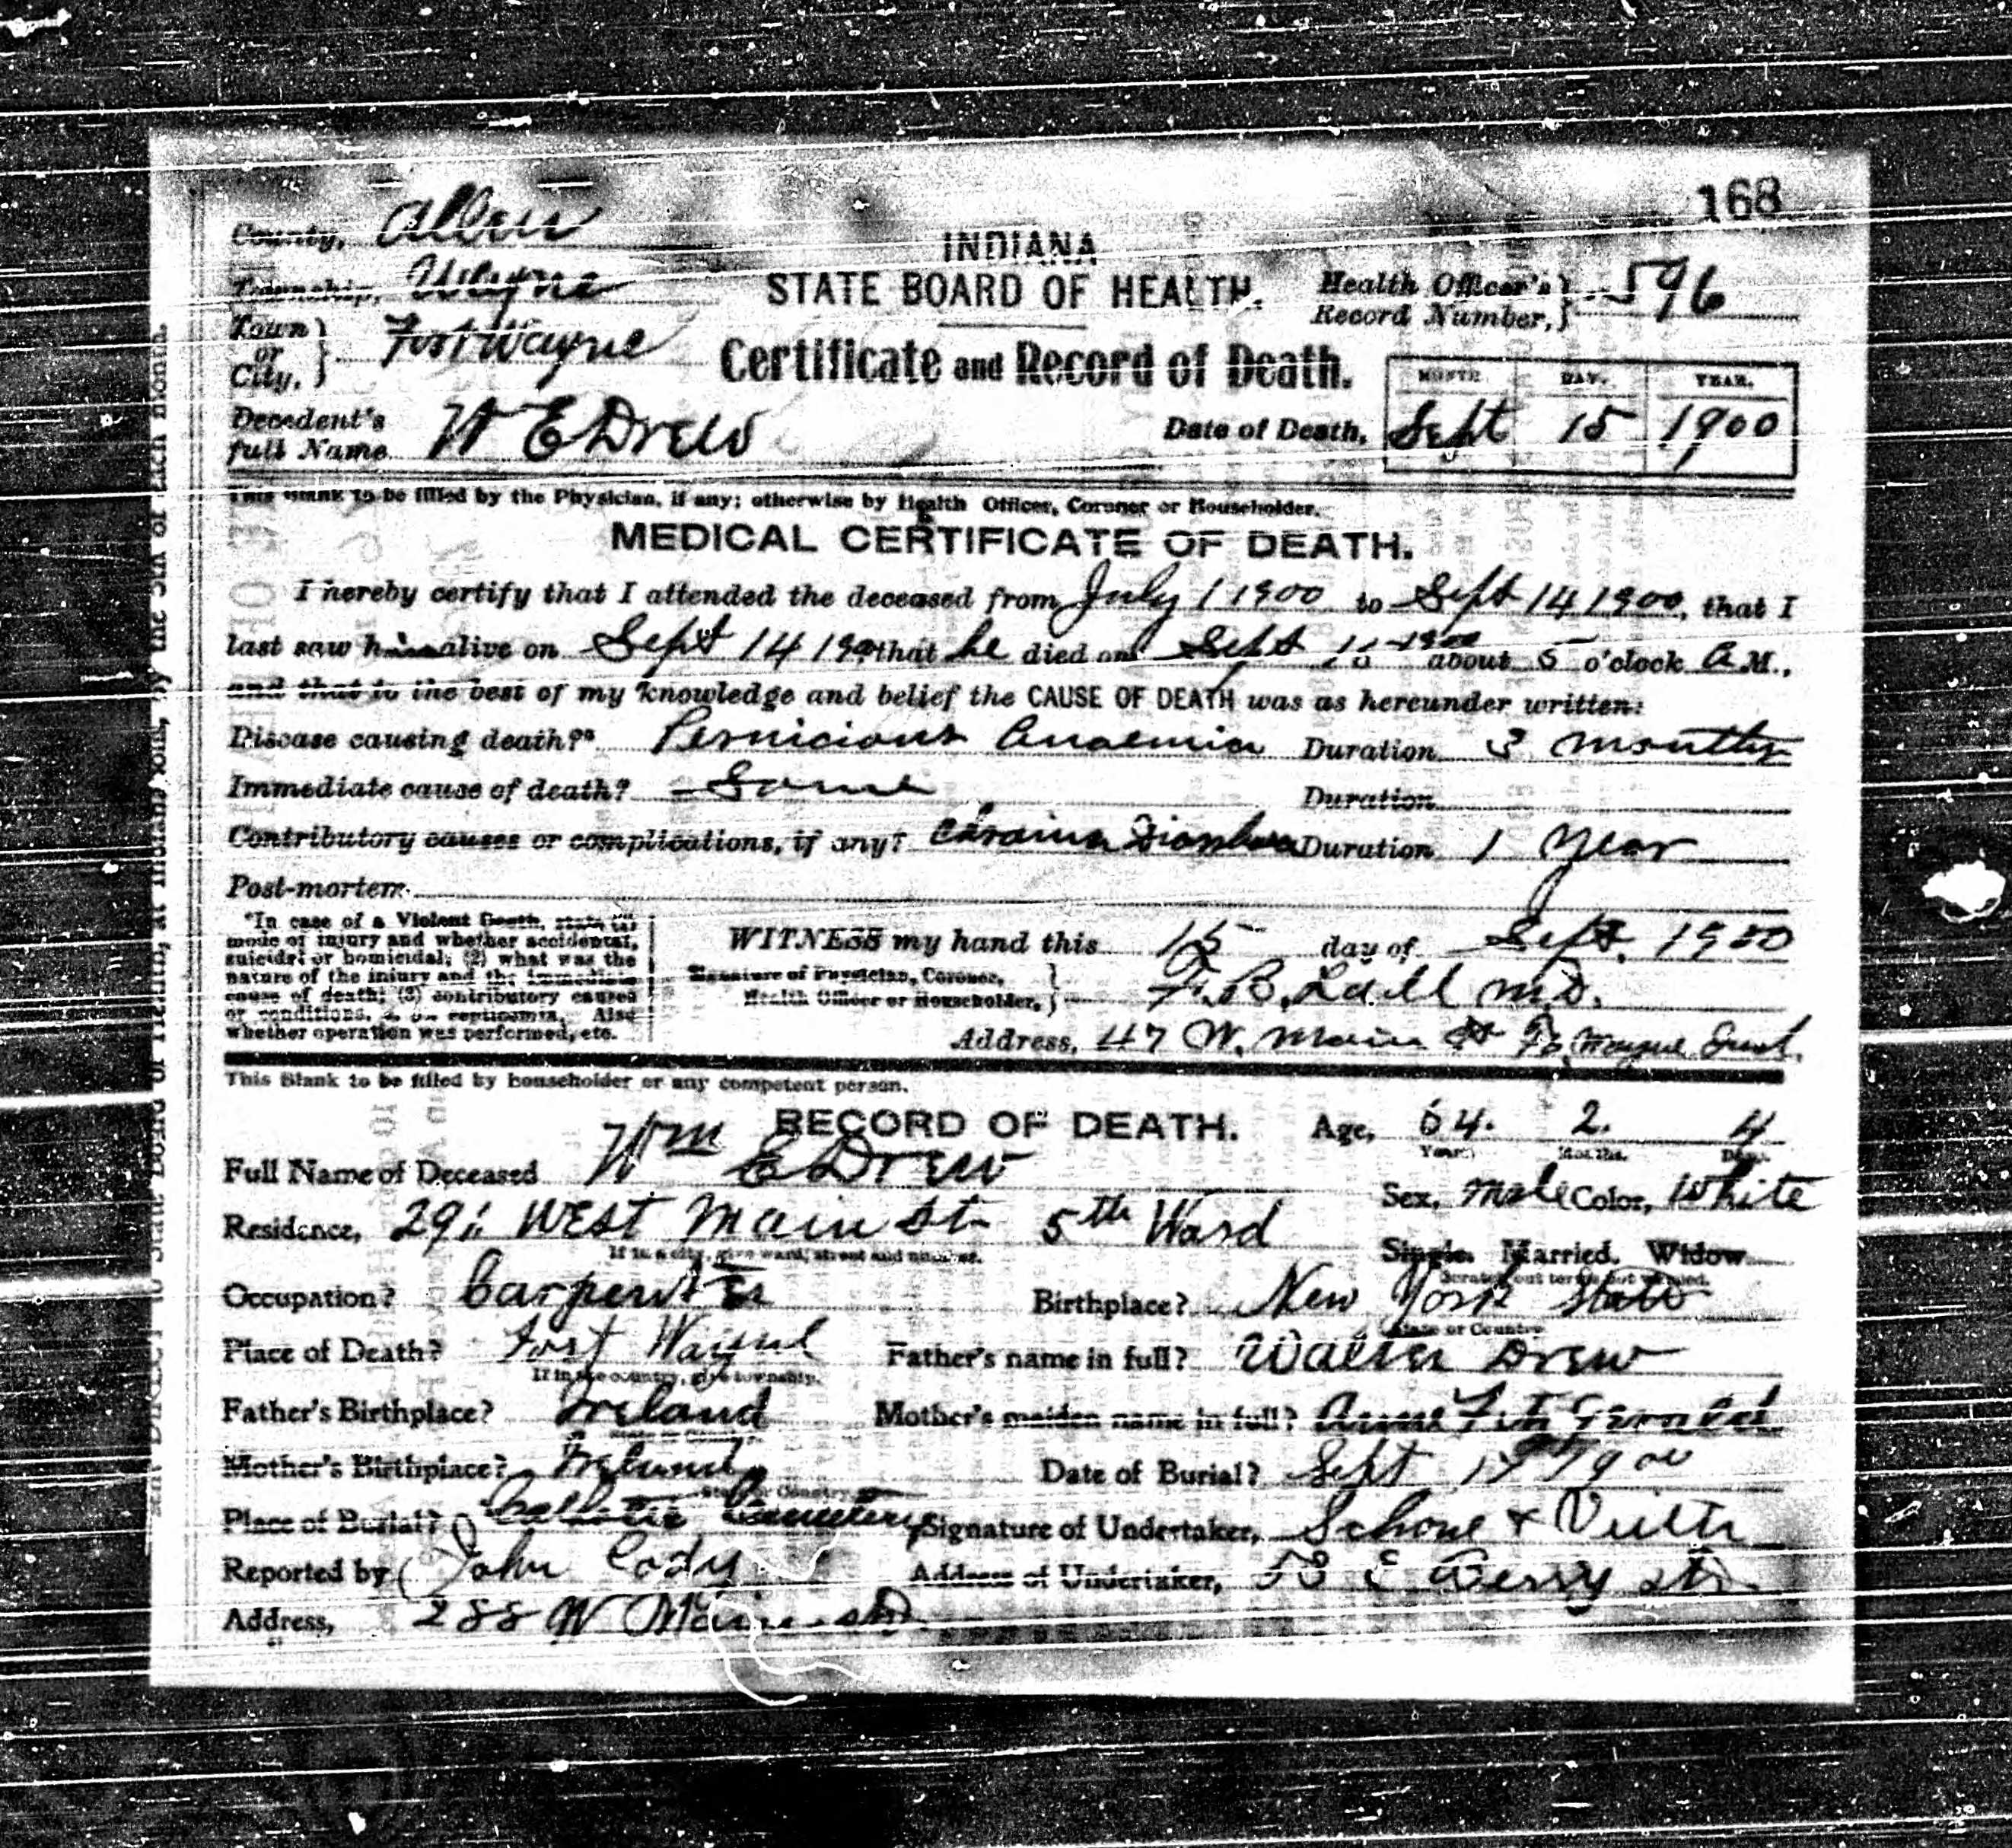 168
County, Allen
INDIANA
Township, Wayne
STATE BOARD OF HEALTH.
Health Officer's Record Number, 596
Town or City, Fort Wayne
Certificate and Record of Death.
MONTH. DAY. YEAR.
Decedent's full Name W E Drew
Date of Death, Sept 15 1900
This blank to be filled by the Physician, if any; otherwise by Health Officer, Coroner or Householder.
MEDICAL CERTIFICATE OF DEATH.
I hereby certify that I attended the deceased from July 1 1900 to Sept 14 1900, that I
last saw him alive on Sept 14 1900 that he died on Sept 1900 about 5 o'clock A.M.,
and that to the best of my knowledge and belief the CAUSE OF DEATH was as hereunder written:
Disease causing death?* Pernicious Anaemia Duration 3 months
Immediate cause of death? Same Duration
Contributory causes or complications, if any? Duration 1 Year
Post-mortem
*In case of a Violent Death, state
mode of injury and whether accidental,
suicidal or homicidal; (2) what was the
nature of the injury and the immediate
cause of death; (3) contributory causes
or conditions, septicemia. Also
whether operation was performed, etc.
WITNESS my hand this 15 day of Sept. 1900
Signature of Physician, Coroner, Health Officer or Householder, F. B. M.D.
Address, 47 W. Main St Ft Wayne Ind.
This Blank to be filled by householder or any competent person.
RECORD OF DEATH.
Age, 64. 2. 4
Years Months. Days.
Full Name of Deceased Wm E Drew
Sex, Male Color, White
Residence, West Main St 5th Ward
If in a city, give ward, street and number.
Single. Married. Widow
Scratch out terms not wanted.
Occupation? Carpenter
Birthplace? New York State
State or Country
Place of Death? Fort Wayne
If in the country, give township.
Father's name in full? Walter Drew
Father's Birthplace? Ireland
State or Country
Mother's maiden name in full? Anne Fitzgerald
Mother's Birthplace? Ireland
State or Country
Date of Burial? Sept 1900
Place of Burial? Catholic Cemetery
Signature of Undertaker, Schone &
Reported by John Cody
Address of Undertaker, E Berry St.
Address, 288 W Main St